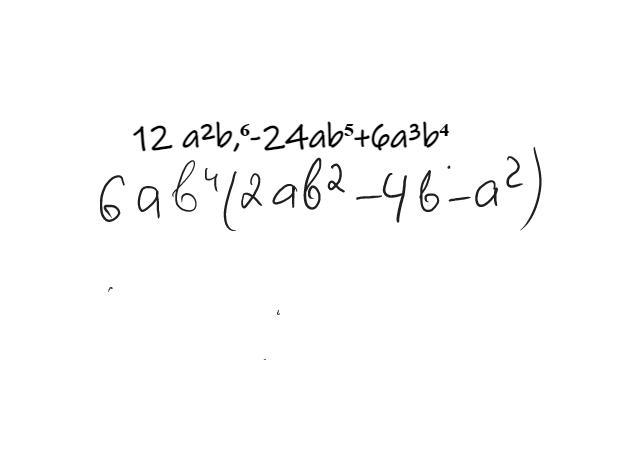 12 a²b,⁶-24ab⁵+6a³b⁴
6ab⁴(2ab²-4b-a²)